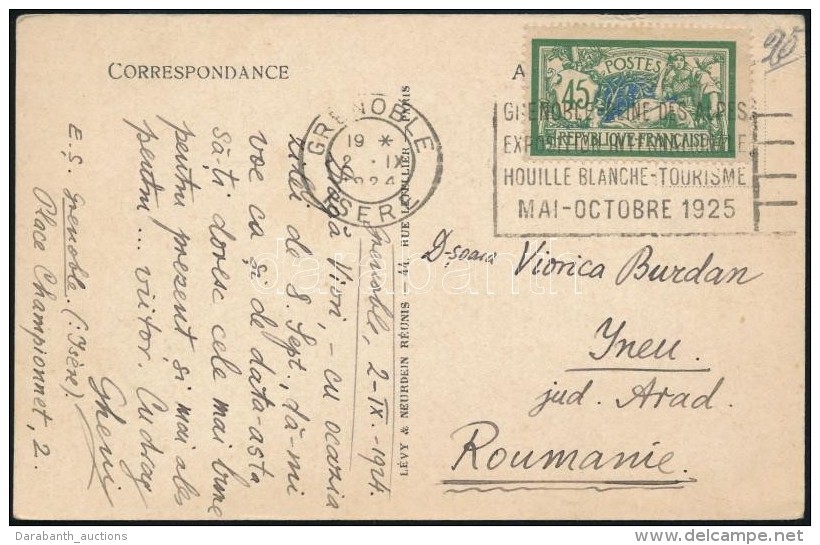 CORRESPONDANCE
A
95
POSTES
45
REPUBLIQUE FRANÇAISE
GRENOBLE
19 *
IX
ISERE
GRENOBLE REINE DES ALPES
HOUILLE BLANCHE-TOURISME
MAI-OCTOBRE 1925
LÉVY & NEURDEIN RÉUNIS - 44, RUE LETELLIER, PARIS
Grenoble, 2-IX.-1924.
Dragă Viori, - cu ocazia
zilei de 8. Sept., dă-mi
voe ca și de data-asta
să-ți doresc cele mai bune
pentru prezent și mai ales
pentru... viitor. Cu drag
Gheni
E.Ș. Grenoble. (:Isère).
Place Championnet, 2.
D-șoara Viorica Burdan
Ineu.
jud. Arad.
Roumanie.
darabanth
Darabanth_auctions
delcampe.net